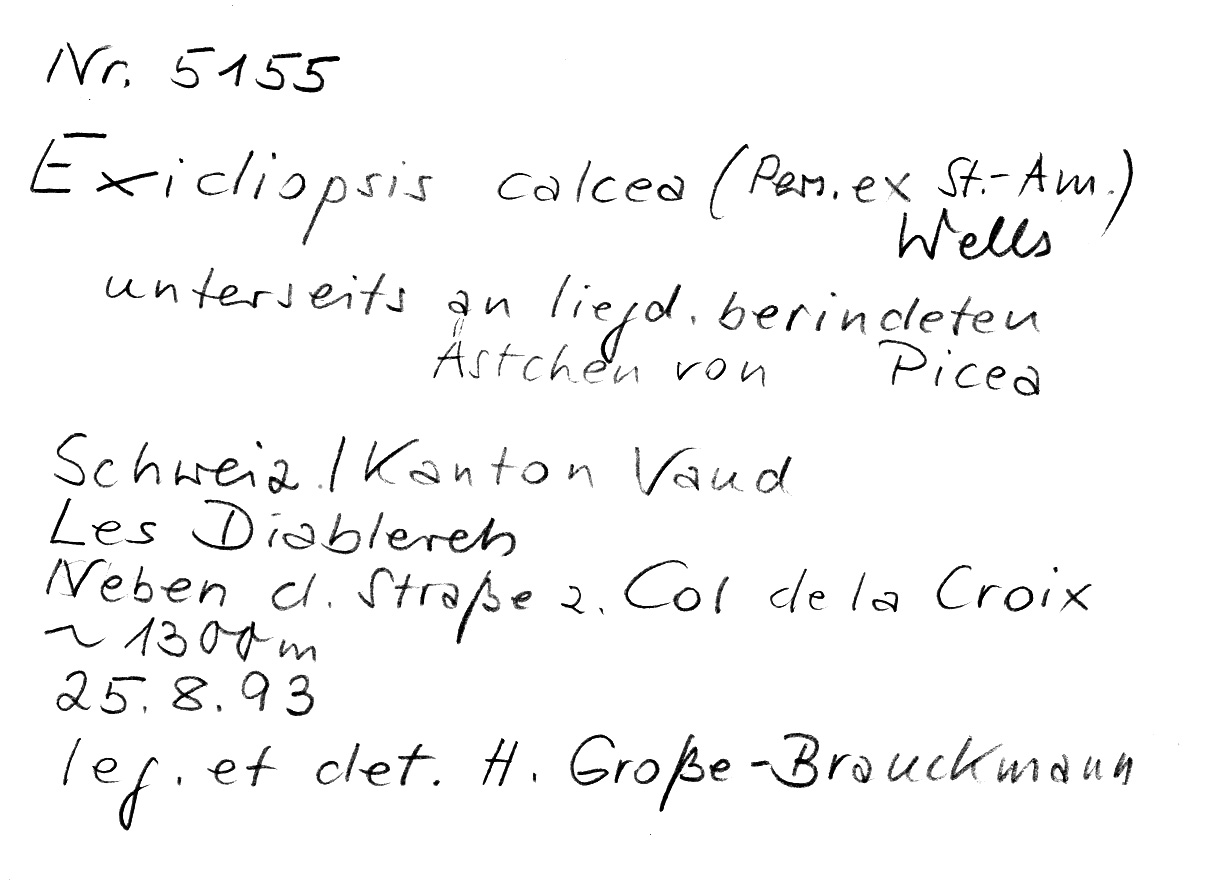 Nr. 5155
Exidiopsis calcea (Pers. ex St.-Am.)
Wells
unterseits an liegd. berindeten
Ästchen von Picea
Schweiz / Kanton Vaud
Les Diablerets
Neben d. Straße z. Col de la Croix
~ 1300 m
25.8.93
leg. et det. H. Große-Brauckmann